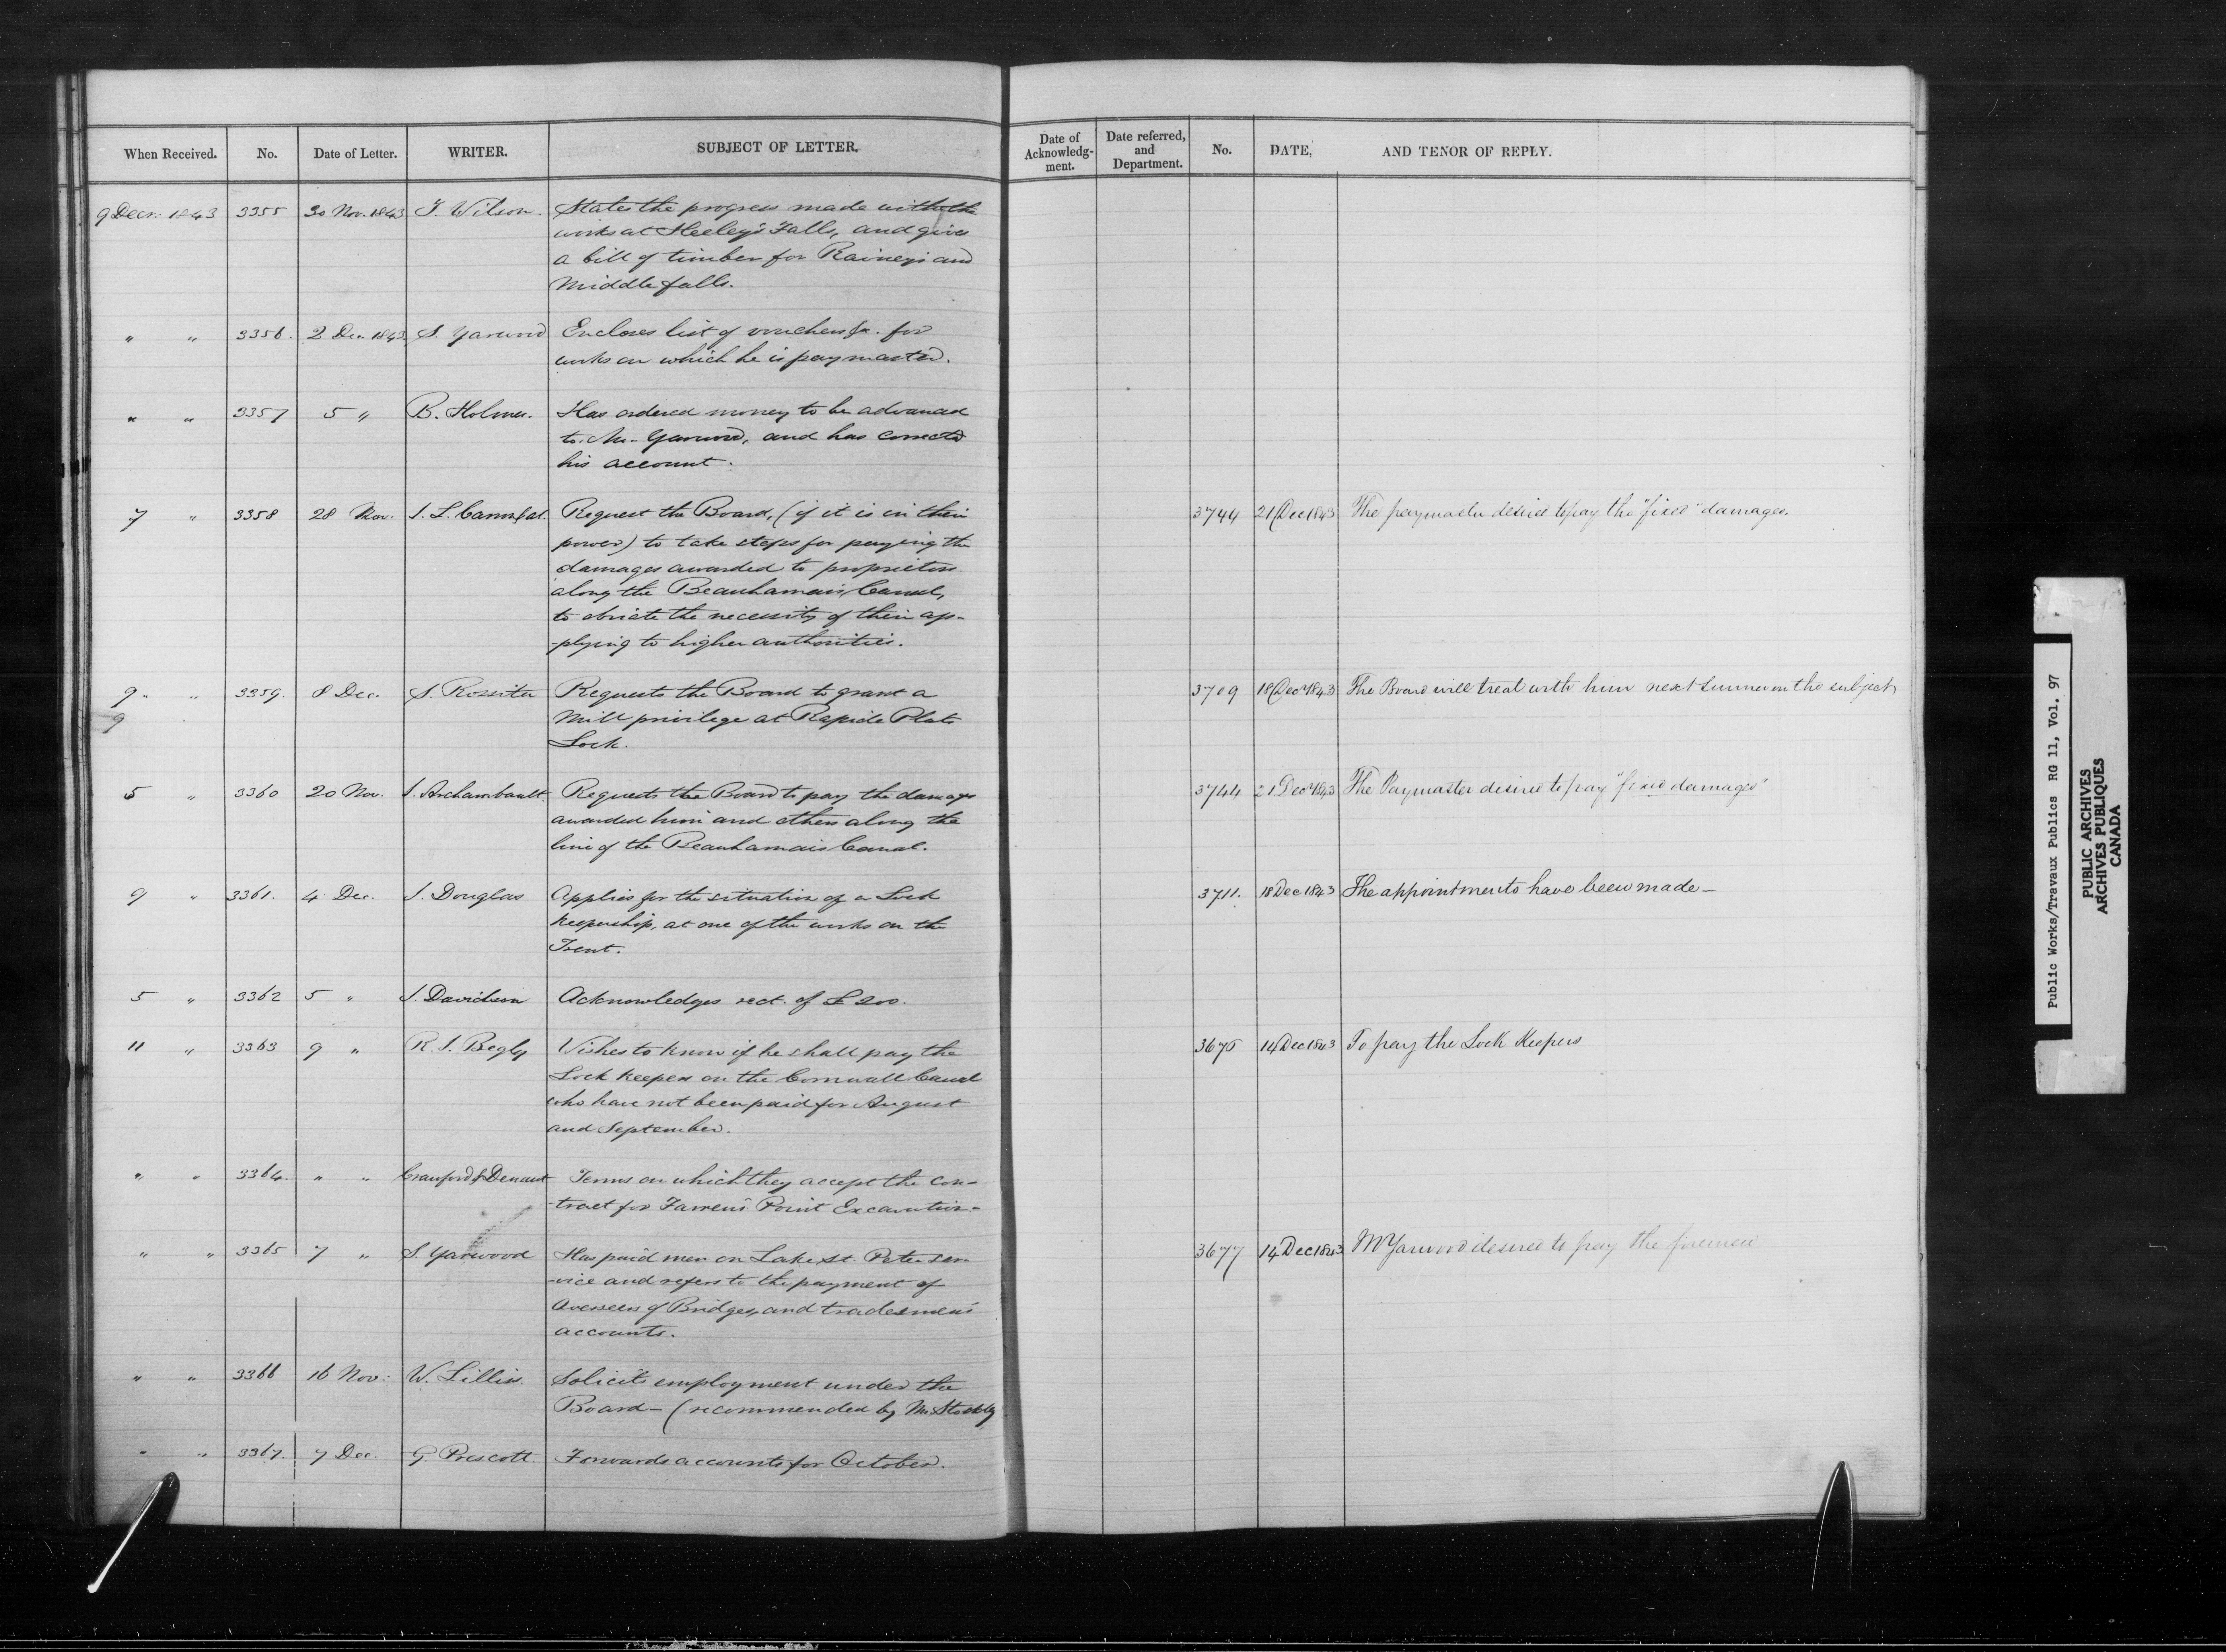 When Received. No. Date of Letter. WRITER. SUBJECT OF LETTER.
9 Decr. 1843 3355 30 Nov. 1843 T. Wilson. States the progress made with the
works at Heeley's Falls, and gives
a bill of timber for Rainey's and
Middle falls.
" " 3356. 2 Dec. 1843 S. Yarwood Encloses list of vouchers &c. for
works on which he is paymaster.
" " 3357 5 " B. Holmes. Has ordered money to be advanced
to Mr. Yarwood, and has corrected
his account.
7 " 3358 28 Nov. Request the Board, (if it is in their
power) to take steps for paying the
damages awarded to proprietors
along the Beauharnais Canal,
to obviate the necessity of their ap-
-plying to higher authorities.
9 " " 3359. 8 Dec. S. Rossiter Requests the Board to grant a
9
Mill privilege at Rapide Plat
Lock.
5 " 3360 20 Nov. J. Archambault. Requests the Board to pay the damage
awarded him and others along the
line of the Beauharnais Canal.
9 " 3361. 4 Dec. J. Douglas Applies for the situation of a Lock
keepership, at one of the works on the
Trent.
5 " 3362 5 " J. Davidson Acknowledges rect. of £200.
11 " 3363 9 " R. J. Begly Vishes to know if he shall pay the
Lock keepers on the Cornwall Canal
who have not been paid for August
and September.
" " 3364. " " Crawford & Denaut Terms on which they accept the con-
-tract for Farren's Point Excavation-
" " 3365 7 " S. Yarwood Has paid men on Lake St. Peter ser-
-vice and refers to the payment of
Overseers of Bridges, and tradesmen's
accounts.
" " 3366 16 Nov: W. Lillis. Solicits employment under the
Board- (recommended by Mr
" " 3367. 7 Dec. G. Prescott. Forwards accounts for October.
Date of Acknowledg-ment. Date referred, and Department. No. DATE, AND TENOR OF REPLY.
3744 21 Dec 1843 The paymaster desired to pay the "fixed" damages.
3709 18 Dec 1843 The Board will treat with him next summer on the subject
3744 21 Decr 1843 The Paymaster desired to pay "fixed damages"
3711. 18 Dec 1843 The appointments have been made-
3675 14 Dec 1843 To pay the Lock Keepers
3677 14 Dec 1843 Mr Yarwood desired to pay the firemen
Public Works/Travaux Publics RG 11, Vol. 97
PUBLIC ARCHIVES
ARCHIVES PUBLIQUES
CANADA